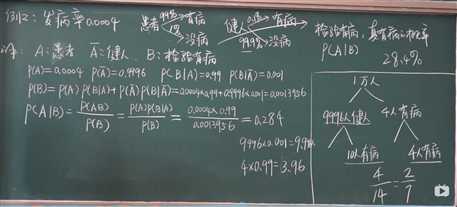 例2：发病率0.0004
患者 99% 有病
没病
健人 0.1% 有病
99.9% 没病
检验有病，真有病的概率
P(A|B)
28.4%
解：A：患者 Ā：健人 B：检验有病
P(A)=0.0004 P(Ā)=0.9996 P(B|A)=0.99 P(B|Ā)=0.001
P(B)=P(A)P(B|A)+P(Ā)P(B|Ā)=0.0004×0.99+0.9996×0.001=0.0013956
P(A|B)=P(AB)/P(B)=P(A)P(B|A)/P(B)=0.0004×0.99/0.0013956=0.284
9996×0.001=9.996
4×0.99=3.96
1万人
9996人健人 4人有病
10人有病 4人有病
4/14=2/7